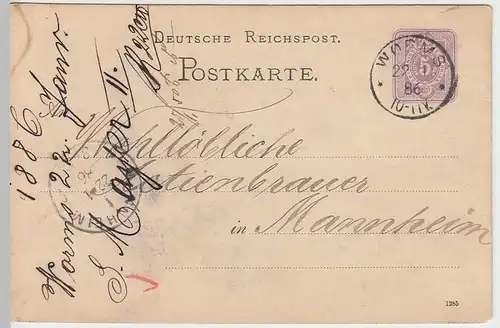 DEUTSCHE REICHSPOST.
POSTKARTE.
WORMS
22
86
10-11V.
5
Wohllöbliche
Actienbrauer
in Mannheim
1285
1886
Worms 22. Januar
S. Mayer II.